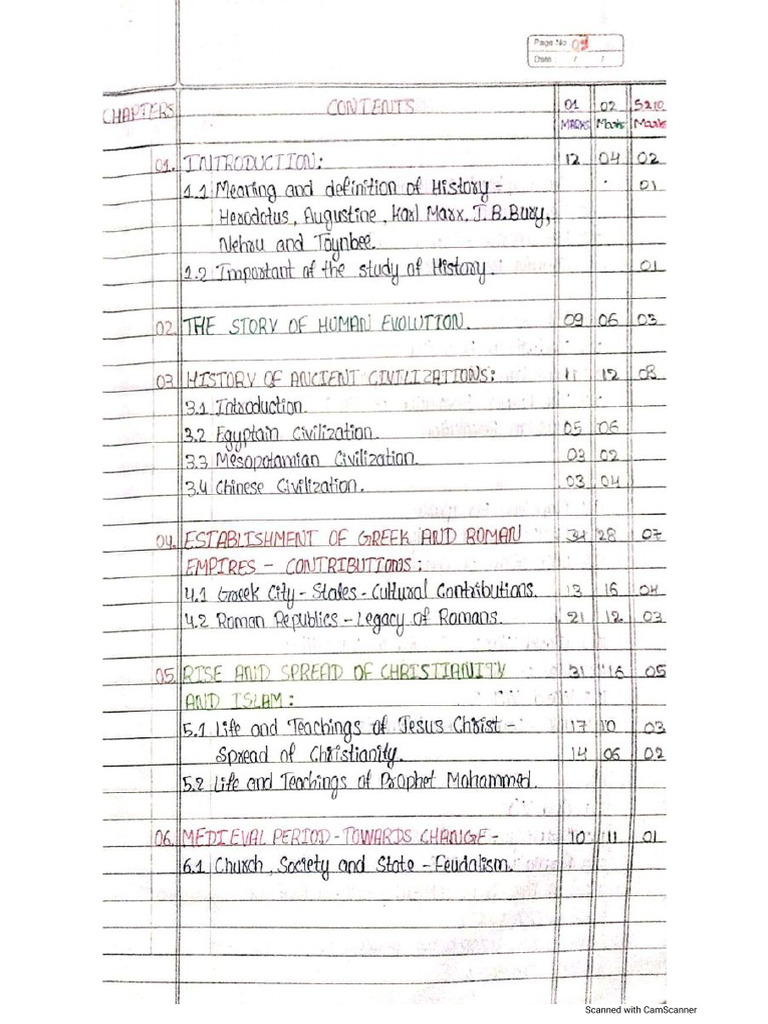 Page No 03
Date / /
CHAPTERS CONTENTS 01 02 5210
MARKS Mark Mark
01. INTRODUCTION: 12 04 02
1.1 Meaning and definition of History - 01
Herodotus, Augustine, Karl Marx, J. B. Bury,
Nehru and Toynbee.
1.2 Important of the study of History. 01
02. THE STORY OF HUMAN EVOLUTION. 09 06 03
03 HISTORY OF ANCIENT CIVILIZATIONS: 11 12 03
3.1 Introduction.
3.2 Egyptain Civilization. 05 06
3.3 Mesopotamian Civilization. 03 02
3.4 Chinese Civilization. 03 04
04. ESTABLISHMENT OF GREEK AND ROMAN 34 28 07
EMPIRES - CONTRIBUTIONS:
4.1 Greek City - States - Cultural Contributions. 13 16 04
4.2 Roman Republics - Legacy of Romans. 21 12 03
05. RISE AND SPREAD OF CHRISTIANITY 31 16 05
AND ISLAM:
5.1 Life and Teachings of Jesus Christ - 17 10 03
Spread of Christianity. 14 06 02
5.2 Life and Teachings of Prophet Mohammed.
06. MEDIEVAL PERIOD - TOWARDS CHANGE - 10 11 01
6.1 Church, Society and State - Feudalism.
Scanned with CamScanner